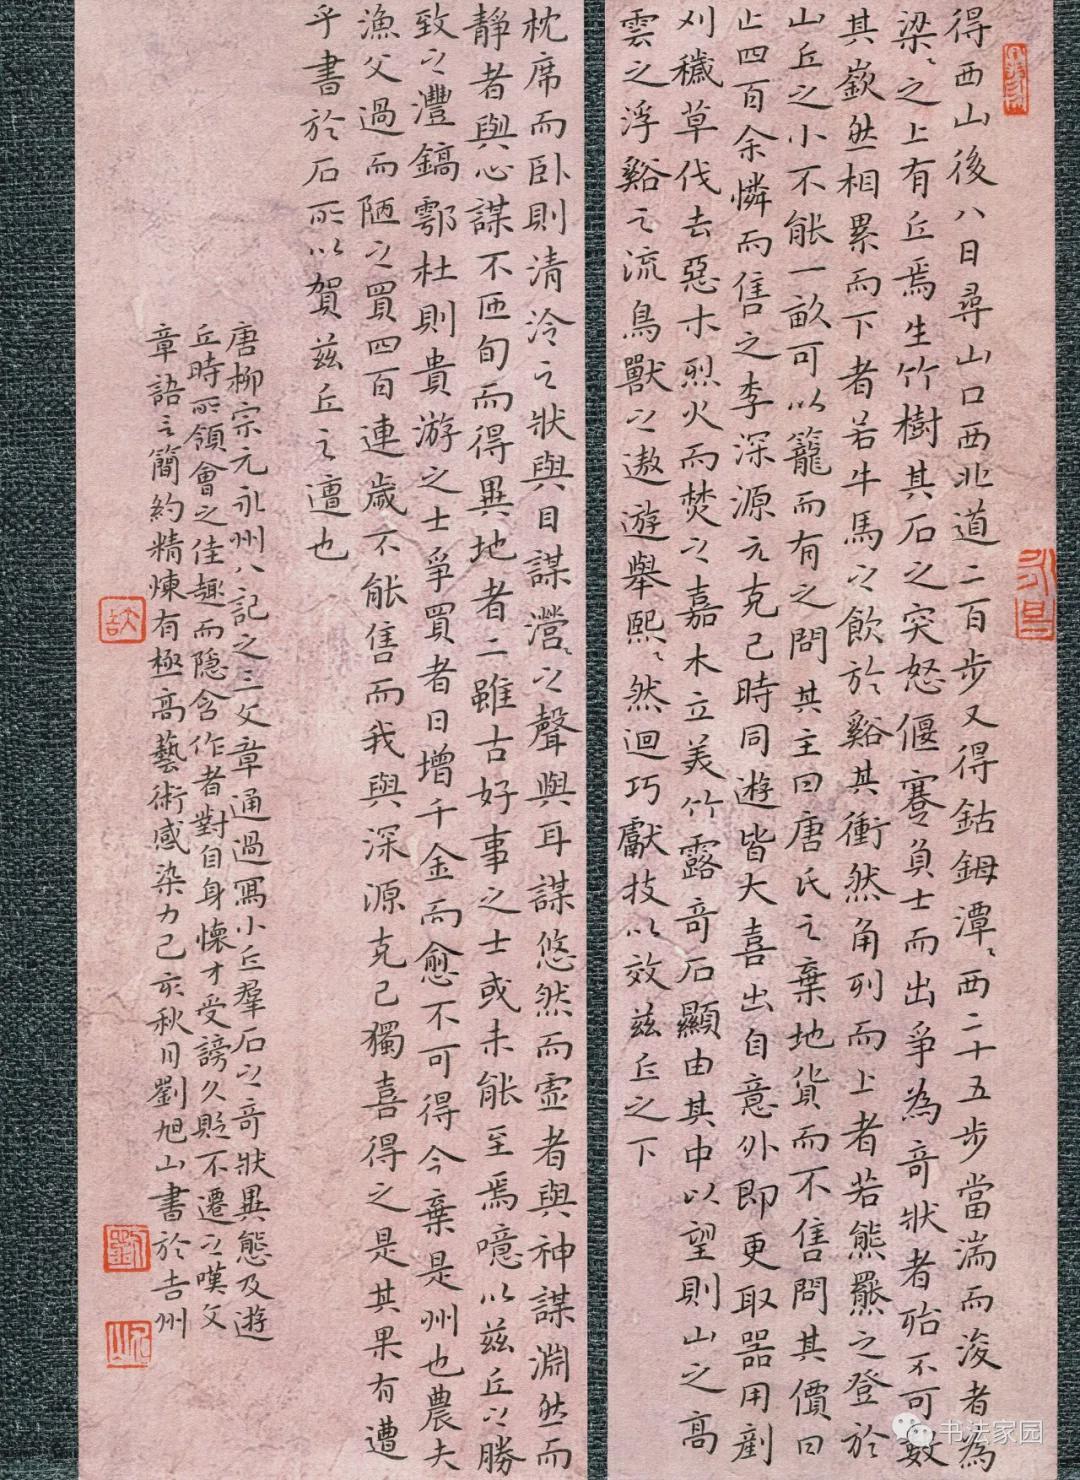 得西山後八日尋山口西北道二百步又得鈷鉧潭、西二十五步當湍而浚者為
梁、之上有丘焉生竹樹其石之突怒偃蹇負士而出爭為奇狀者殆不可數
其嶔然相累而下者若牛馬之飲於谿其衝然角列而上者若熊羆之登於
山丘之小不能一畝可以籠而有之問其主曰唐氏之棄地貨而不售問其價曰
止四百余憐而售之李深源元克己時同遊皆大喜出自意外即更取器用剷
刈穢草伐去惡木烈火而焚之嘉木立美竹露奇石顯由其中以望則山之高
雲之浮谿之流鳥獸之遨遊舉熙、然迴巧獻技以效茲丘之下
枕席而卧則清泠之狀與目謀瀯、之聲與耳謀悠然而虛者與神謀淵然而
靜者與心謀不匝旬而得異地者二雖古好事之士或未能至焉噫以茲丘之勝
致之灃鎬鄠杜則貴游之士爭買者日增千金而愈不可得今棄是州也農夫
漁父過而陋之買四百連歲不能售而我與深源克己獨喜得之是其果有遭
乎書於石所以賀茲丘之遭也
唐柳宗元永州八記之三文章通過寫小丘羣石之奇狀異態及遊
丘時所領會之佳趣而隱含作者對自身懷才受謗久貶不遷之嘆文
章語言簡約精煉有極高藝術感染力己亥秋月劉旭山書於吉州
书法家园